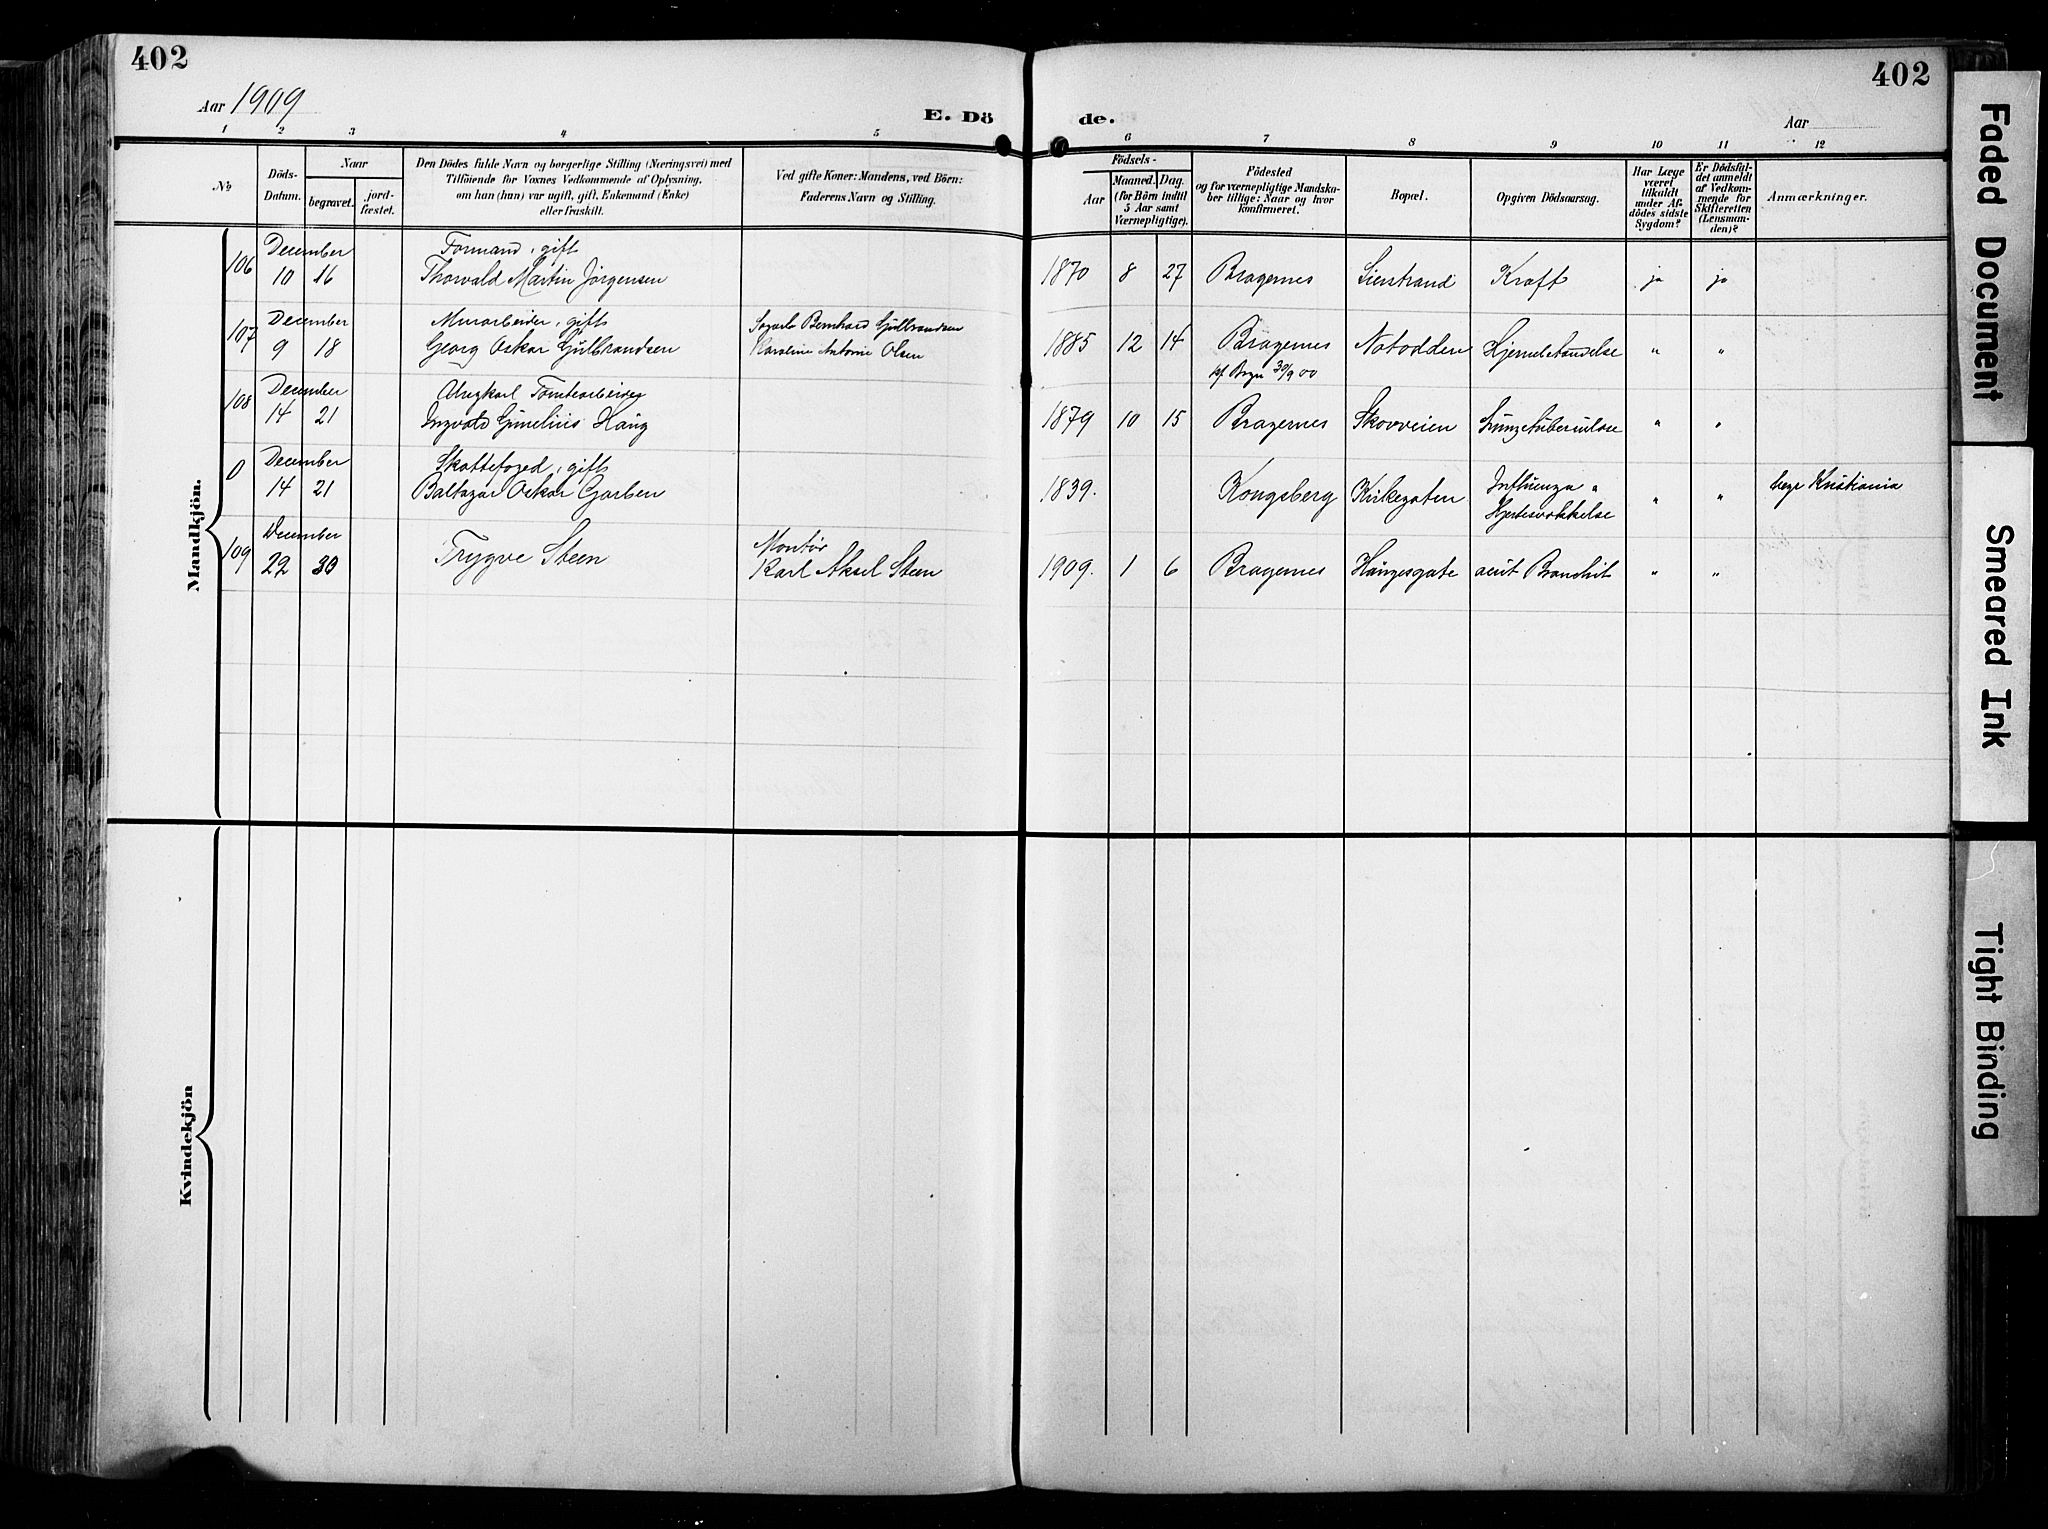 402
402
Aar 1909
E. Dö
de.
Aar
1 2 3 4 5 6 7 8 9 10 11 12
No
Döds-
Datum.
Naar
begravet.
jord-
fæstet.
Den Dödes fulde Navn og borgerlige Stilling (Næringsvei) med
Tilföiende for Voxnes Vedkommende af Oplysning,
om han (hun) var ugift, gift, Enkemand (Enke)
eller fraskilt.
Ved gifte Koner: Mandens, ved Börn:
Faderens Navn og Stilling.
Födsels-
Aar
Maaned.
Dag.
(for Börn indtil
5 Aar samt
Værnepligtige).
Födested
og for værnepligtige Mandska-
ber tillige: Naar og hvor
konfirmeret.
Bopæl.
Opgiven Dödsaarsag.
Har Læge
været
tilkaldt
under Af-
dödes sidste
Sygdom?
Er Dödsfal-
det anmeldt
af Vedkom-
mende for
Skifteretten
(Lensman-
den)?
Anmærkninger.
Mandkjön.
December Formand, gift
106 10 16 Thorvald Martin Jörgensen 1870 8 27 Bragernes Lierstrand Kræft ja ja
December Murarbeider, gift Bernhard Gulbrandsen
107 9 18 Georg Oskar Gulbrandsen Karoline Antonie Olsen 1885 12 14 Bragernes Notodden " "
30/9 00
December Ungkarl Tomtearbeider
108 14 21 Ingvald Haug 1879 10 15 Bragernes Skovveien Lungetuberculose " "
December Skattefoged, gift Influenza
0 14 21 Baltazar Oskar Garben 1839. Kongsberg Kirkegaten " " Kristiania
Hjertesvækkelse
December Montör
109 22 30 Trygve Steen Karl Aksel Steen 1909. 1 6 Bragernes Haugesgate acut Bronchit " "
Kvindekjön
Faded Document
Smeared Ink
Tight Binding